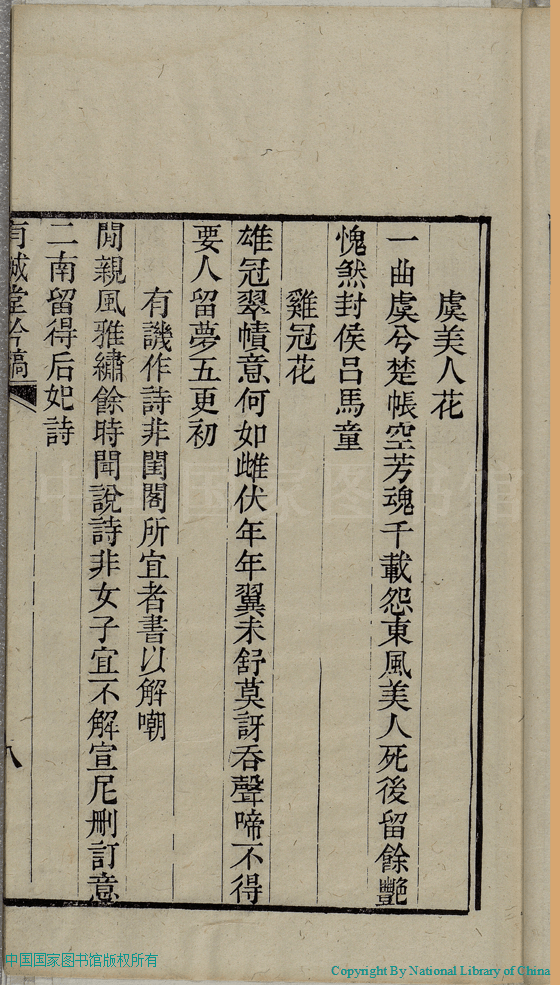 虞美人花
一曲虞兮楚帳空芳魂千載怨東風美人死後留餘艷
愧煞封侯呂馬童
雞冠花
雄冠翠幘意何如雌伏年年翼未舒莫訝吞聲啼不得
要人留夢五更初
有譏作詩非閨閣所宜者書以解嘲
閒親風雅繡餘時聞說詩非女子宜不解宣尼刪訂意
二南留得后妃詩
有誠堂吟稿
八
中国国家图书馆
中国国家图书馆版权所有
Copyright By National Library of China